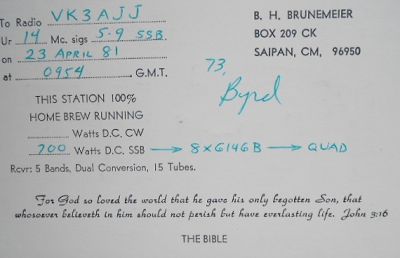 To Radio VK3AJJ
Ur 14 Mc. sigs 5-9 SSB
on 23 April 81
at 0954 G.M.T.
B. H. BRUNEMEIER
BOX 209 CK
SAIPAN, CM, 96950
73,
Byrd
THIS STATION 100%
HOME BREW RUNNING
Watts D.C. CW
700 Watts D.C. SSB → 8x6146B → QUAD
Rcvr: 5 Bands, Dual Conversion, 15 Tubes.
For God so loved the world that he gave his only begotten Son, that
whosoever believeth in him should not perish but have everlasting life. John 3:16
THE BIBLE